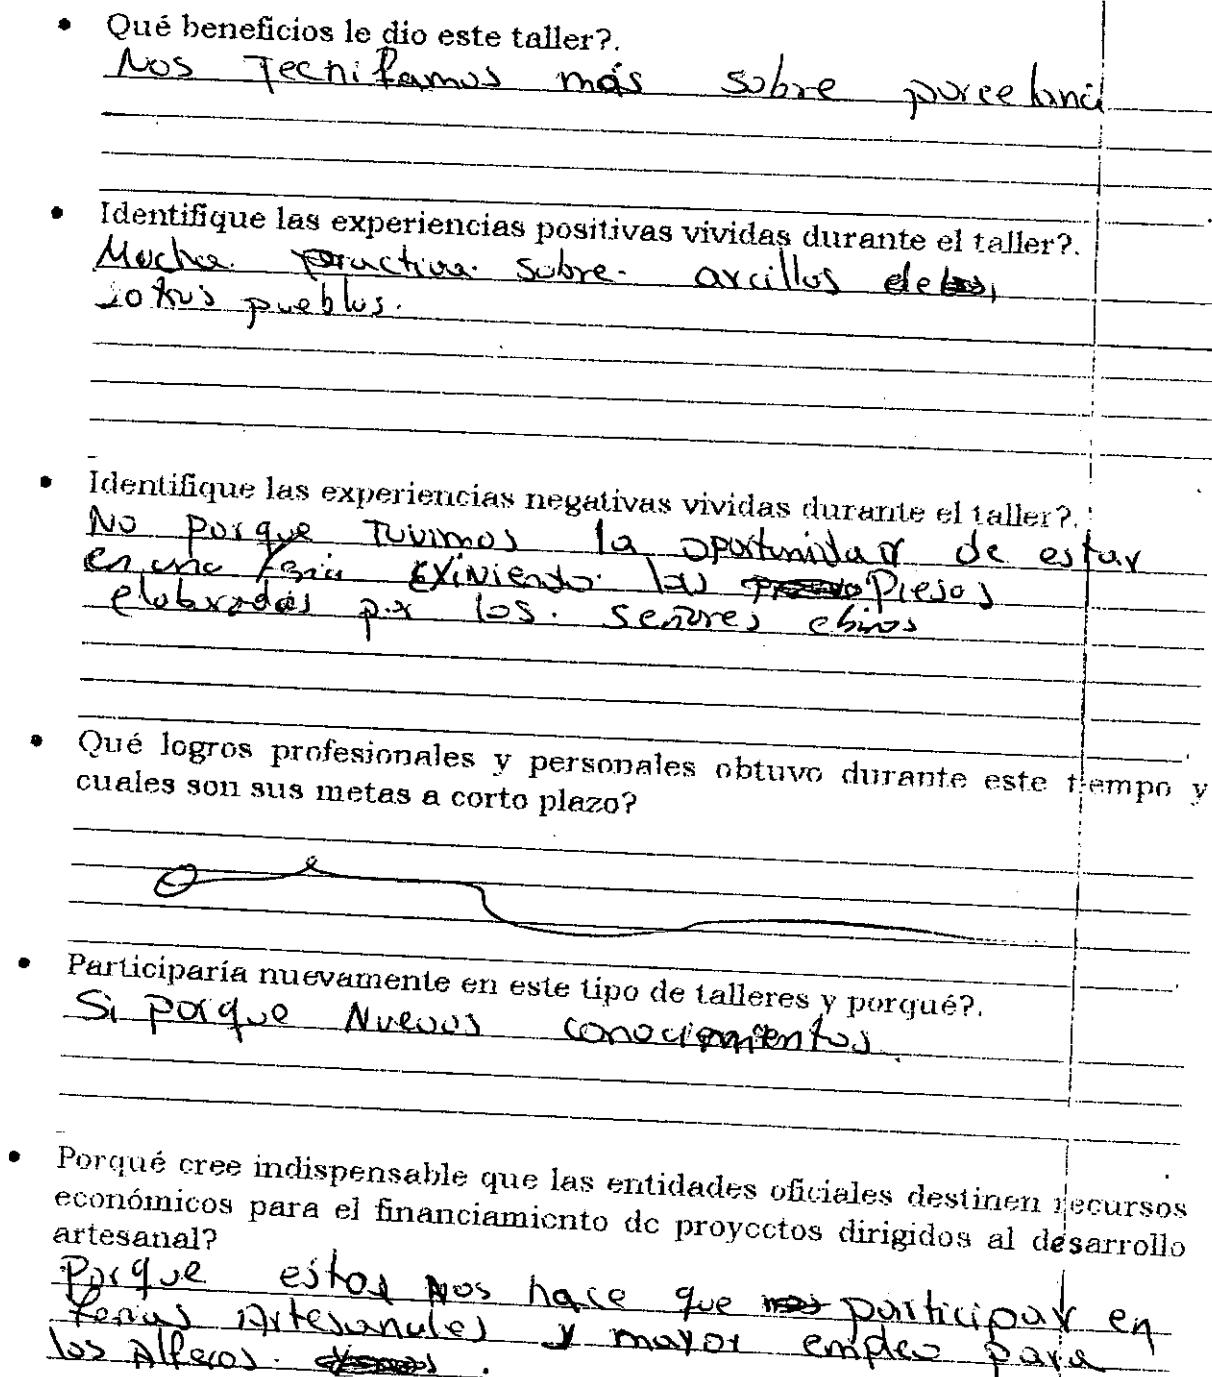 • Qué beneficios le dio este taller?.
Nos Tecnifamos más sobre porcelana
• Identifique las experiencias positivas vividas durante el taller?.
Mucha practica sobre arcillas de
otros pueblos.
• Identifique las experiencias negativas vividas durante el taller?.
No porque Tuvimos la oportunidad de estar
en una feria exiviendo las Piesas
elobradas por los señores chinos
• Qué logros profesionales y personales obtuvo durante este tiempo y
cuales son sus metas a corto plazo?
• Participaría nuevamente en este tipo de talleres y porqué?.
Si porque Nuevos conocimientos.
• Porqué cree indispensable que las entidades oficiales destinen recursos
económicos para el financiamiento de proyectos dirigidos al desarrollo
artesanal?
Porque estos nos hace que participar en
ferias Artesanales y mayor empleo para
los Alferos.